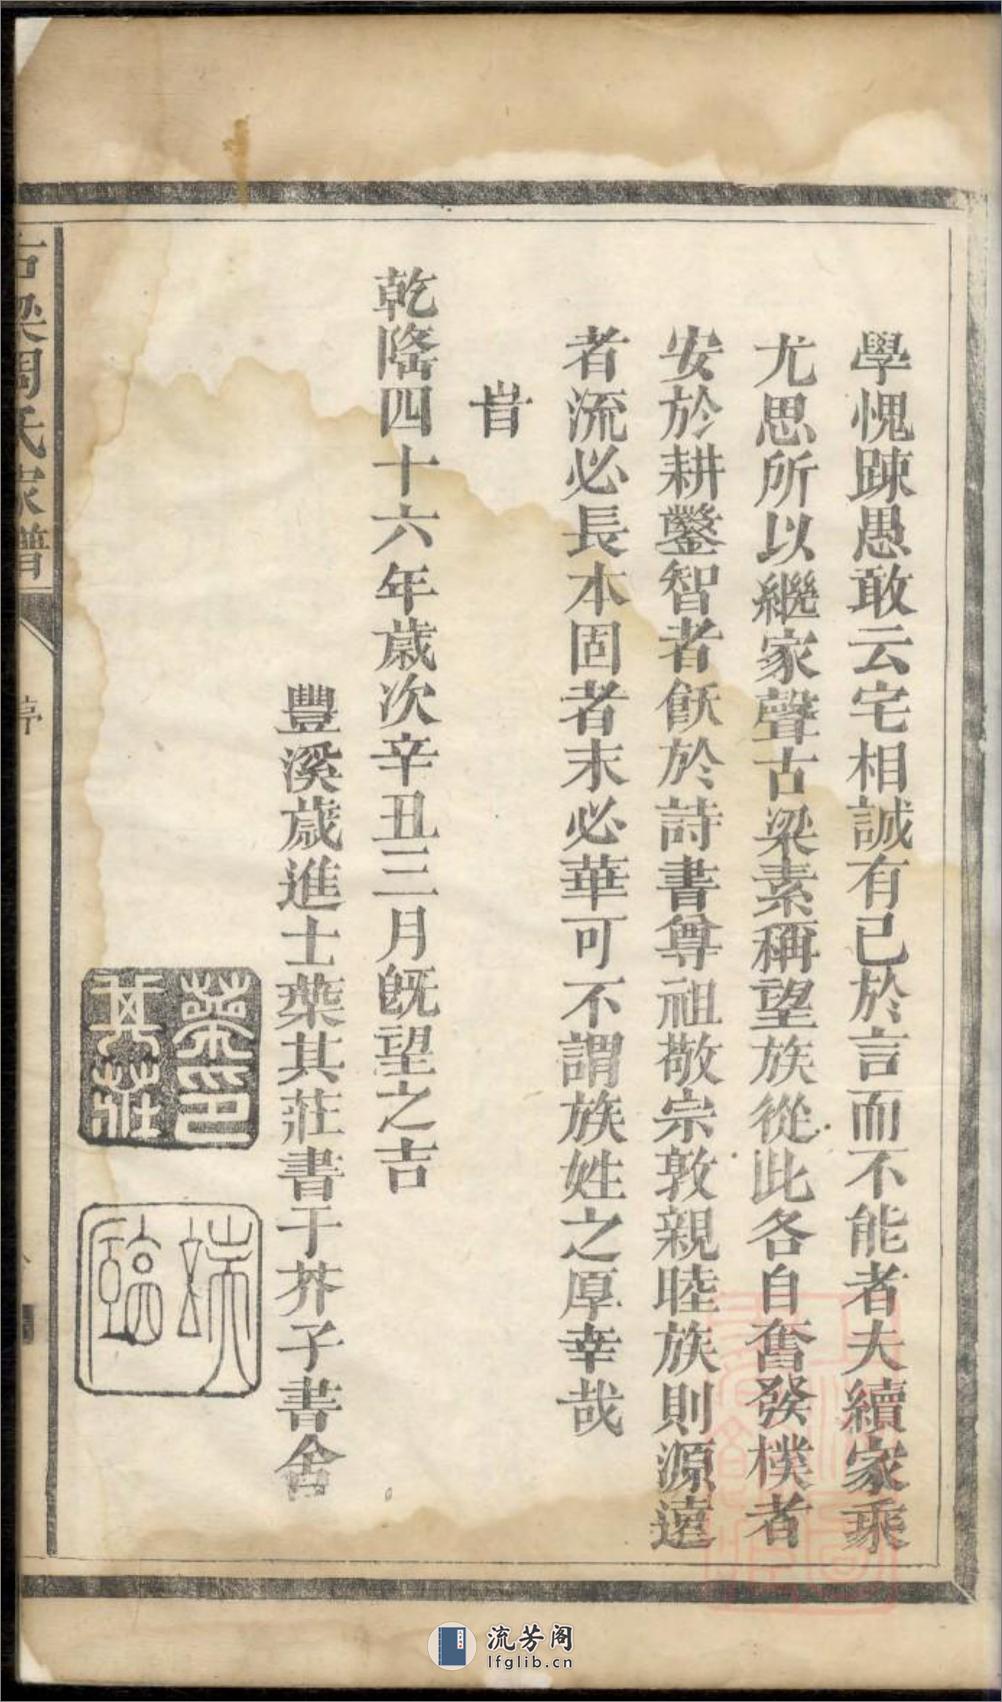 學愧踈愚敢云宅相誠有已於言而不能者夫續家乘
尤思所以繼家聲古梁素稱望族從此各自奮發樸者
安於耕鑿智者飫於詩書尊祖敬宗敦親睦族則源遠
者流必長本固者末必華可不謂族姓之厚幸哉
旹
乾隆四十六年歲次辛丑三月旣望之吉
豐溪歲進士葉其莊書于芥子書舍
葉印其莊
端臨
古梁周氏家譜
序
流芳阁
lfglib.cn